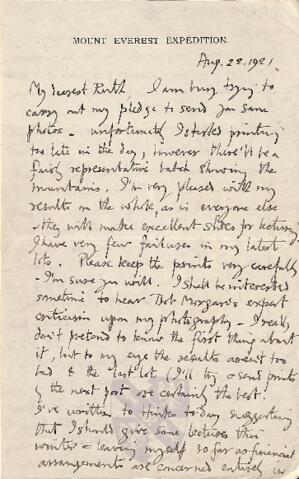 MOUNT EVEREST EXPEDITION.
Aug. 22. 1921
My dearest Ruth, I am busy trying to
carry out my pledge to send you some
photos - unfortunately I started printing
too late in the day; however there'll be a
fairly representative batch showing the
mountains. I'm very pleased with my
results on the whole, as is everyone else
- they will make excellent slides for lecturing
I have very few failures in my latest
lots. Please keep the prints very carefully
- I'm sure you will. I shall be interested
sometime to hear Morgan's expert
criticism upon my photography - I really
don't pretend to know the first thing about
it, but to my eye the results aren't too
bad & the last lot I'll try & send prints
by the next post are certainly the best!
I've written to to-day suggesting
that I should give some lectures this
winter - leaving myself so far as financial
arrangements are concerned entirely in